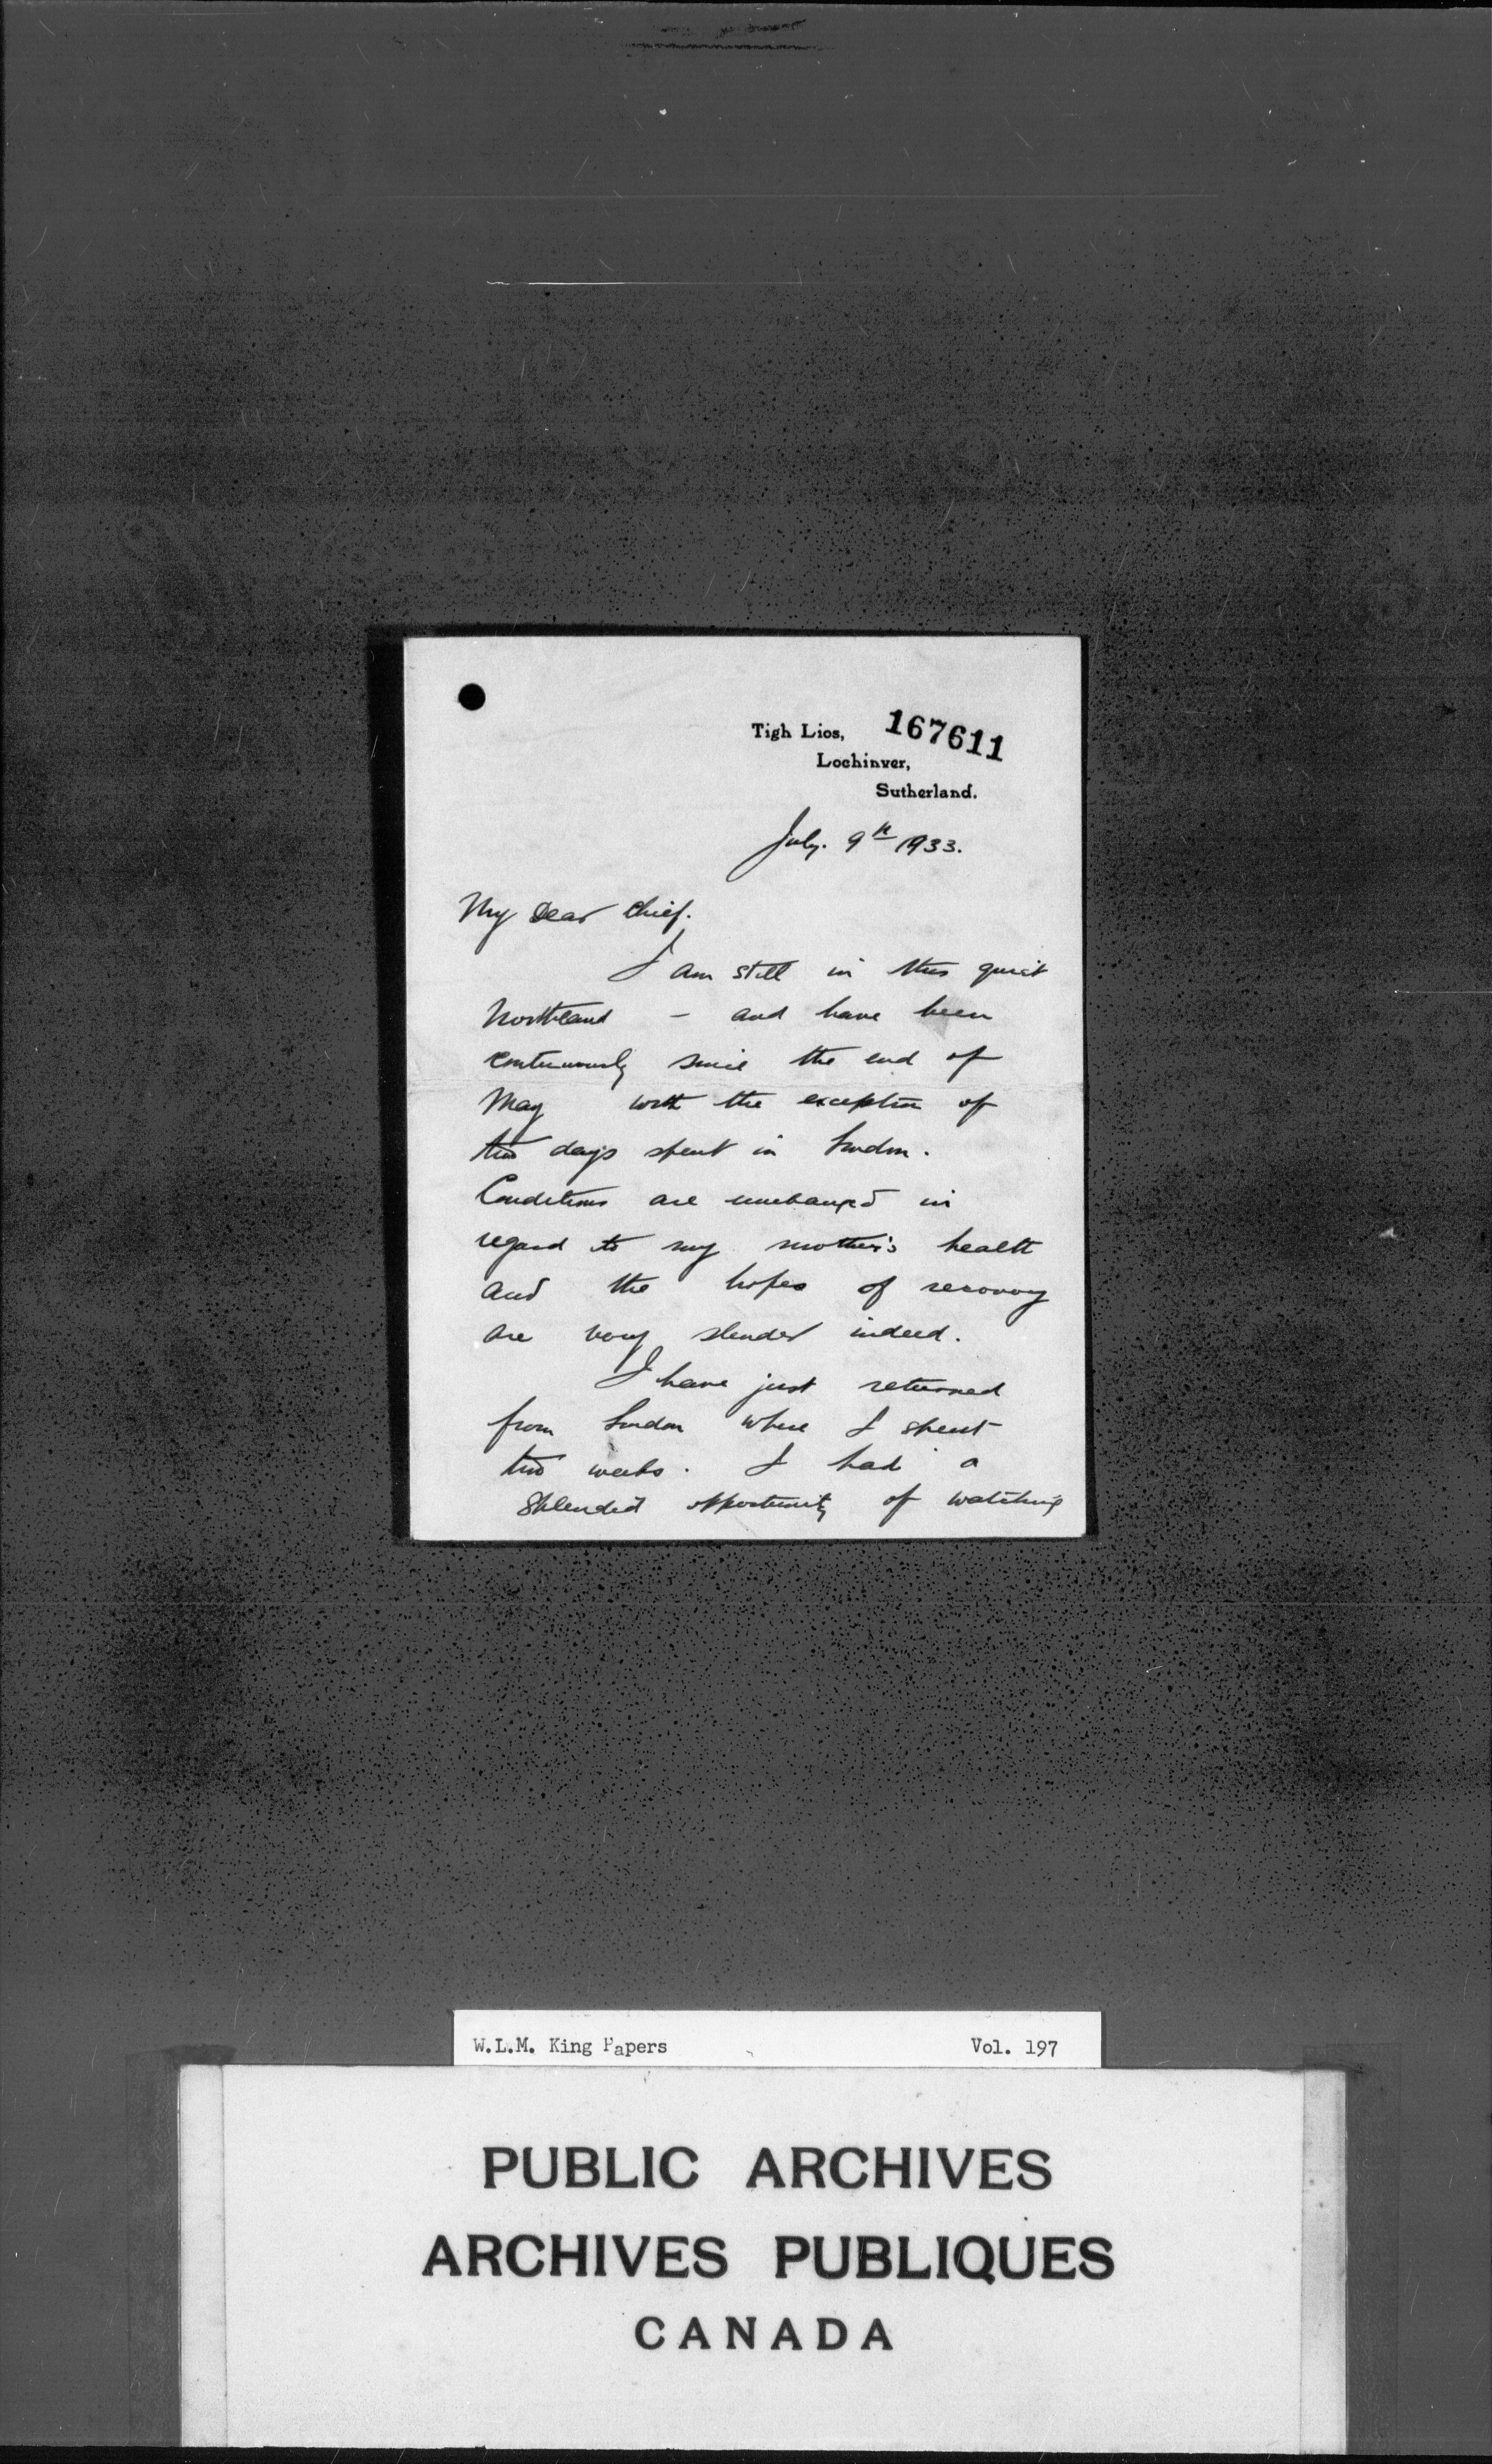 Tigh Lios,
167611
Lochinver,
Sutherland.
July. 9th 1933.
My Dear Chief.
I am still in this quiet
Northland – and have been
continuously since the end of
May with the exception of
two days spent in London.
Conditions are unchanged in
regard to my mother's health
and the hopes of recovery
are very slender indeed.
I have just returned
from London where I spent
two weeks. I had a
splendid opportunity of watching
W.L.M. King Papers Vol. 197
PUBLIC ARCHIVES
ARCHIVES PUBLIQUES
CANADA